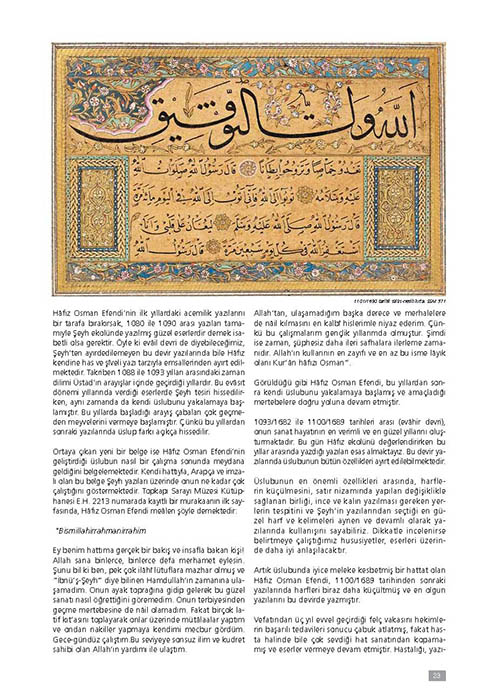 الله ولي التوفيق
تغدو خماصا وتروح بطانا قال رسول الله صلوات الله
عليه وسلامه توبوا الى الله فانى اتوب الى الله فى اليوم مائة مرة
قال رسول الله صلى الله عليه وسلم ليغان على قلبى وانى
استغفر الله فى كل يوم سبعين مرة قال رسول الله
Hâfiz Osman Efendi'nin ilk yıllardaki acemilik yazılarını
bir tarafa bırakırsak, 1080 ilə 1090 arası yazıları tama-
mıyle Şeyh ekolünde yazılmış güzel eserlerdir demek isa-
betli olsa gerektir. Öyle ki evâil devri de diyebileceğimiz,
Şeyh'ten ayırdedilemeyen bu devir yazılarında bile Hâfız
kendine has ve şîveli yazı tarzıyla emsallerinden ayırt edil-
mektedir. Takriben 1088 ile 1093 yılları arasındaki zaman
dilimi Üstad'ın arayışlar içinde geçirdiği yıllardır. Bu evâsıt
dönemi yıllarında verdiği eserlerde Şeyh tesiri hissedilir-
ken, aynı zamanda da kendi üslubunu yakalamaya baş-
lamıştır. Bu yıllarda başladığı arayış çabaları çok geçme-
den meyvelerini vermeye başlamıştır. Çünkü bu yıllardan
sonraki yazılarında üslup farkı açıkça hissedilir.
Ortaya çıkan yeni bir belge ise Hâfız Osman Efendi'nin
geliştirdiği üslubun nasıl bir çalışma sonunda meydana
geldiğini belgelemektedir. Kendi hattıyla, Arapça ve imza-
lı olan bu belge Şeyh yazıları üzerinde onun ne kadar çok
çalıştığını göstermektedir. Topkapı Sarayı Müzesi Kütüp-
hanesi E.H. 2213 numarada kayıtlı bir murakaanın ilk say-
fasında, Hâfız Osman Efendi meâlen şöyle demektedir:
"Bismillâhirrahmanirrahîm
Ey benim hattıma gerçek bir bakış ve insafla bakan kişi!
Allah sana binlerce, binlerce defa merhamet eylesin.
Şunu bil ki ben, pek çok ilâhî lütuflara mazhar olmuş ve
"İbnü'ş-Şeyh" diye bilinen Hamdullah'ın zamanına ula-
şamadım. Onun ayak toprağına gidip gelerek bu güzel
sanatı nasıl öğrettiğini göremedim. Onun terbiyesinden
geçme mertebesine de nâil olamadım. Fakat birçok la-
tif kıt'asını toplayarak onlar üzerinde mütâlaalar yaptım
ve ondan nakiller yapmaya kendimi mecbur gördüm.
Gece-gündüz çalıştım.Bu seviyeye sonsuz ilim ve kudret
sahibi olan Allah'ın yardımı ile ulaştım.
Allah'tan, ulaşamadığım başka derece ve merhalelere
de nâil kılmasını en kalbî hislerimle niyaz ederim. Çün-
kü bu çalışmalarım gençlik yıllarımda olmuştur. Şimdi
ise zaman, şüphesiz daha ileri safhalara ilerleme zama-
nıdır. Allah'ın kullarının en zayıfı ve en az bu isme lâyık
olanı Kur'ân hâfızı Osman".
Görüldüğü gibi Hâfız Osman Efendi, bu yıllardan son-
ra kendi üslubunu yakalamaya başlamış ve amaçladığı
mertebelere doğru yoluna devam etmiştir.
1093/1682 ile 1100/1689 tarihleri arası (evâhir devri),
onun sanat hayatının en verimli ve en güzel yıllarını oluş-
turmaktadır. Bu gün Hâfız ekolünü değerlendirirken bu
yıllar arasında yazdığı yazıları esas almaktayız. Bu devir ya-
zılarında üslubunun bütün özellikleri ayırt edilebilmektedir.
Üslubunun en önemli özellikleri arasında, harfle-
rin küçülmesini, satır nizamında yapılan değişiklikle
sağlanan birliği, ince ve kalın yazılması gereken yer-
lerin tespitini ve Şeyh'in yazılarından seçtiği en gü-
zel harf ve kelimeleri aynen ve devamlı olarak ya-
zılarında kullanışını sayabiliriz. Dikkatle incelenirse
belirtmeye çalıştığımız hususiyetler, eserleri üzerin-
de daha iyi anlaşılacaktır.
Artık üslubunda iyice meleke kesbetmiş bir hattat olan
Hâfız Osman Efendi, 1100/1689 tarihinden sonraki
yazılarında harfleri biraz daha küçültmüş ve en olgun
yazılarını bu devirde yazmıştır.
Vefatından üç yıl evvel geçirdiği felç vakasını hekimle-
rin başarılı tedavileri sonucu çabuk atlatmış, fakat has-
ta halinde bile çok sevdiği hat sanatından kopama-
mış ve eserler vermeye devam etmiştir. Hastalığı, yazı-
23